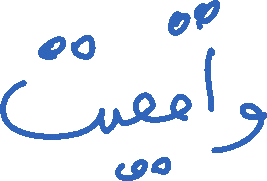 واقعیت